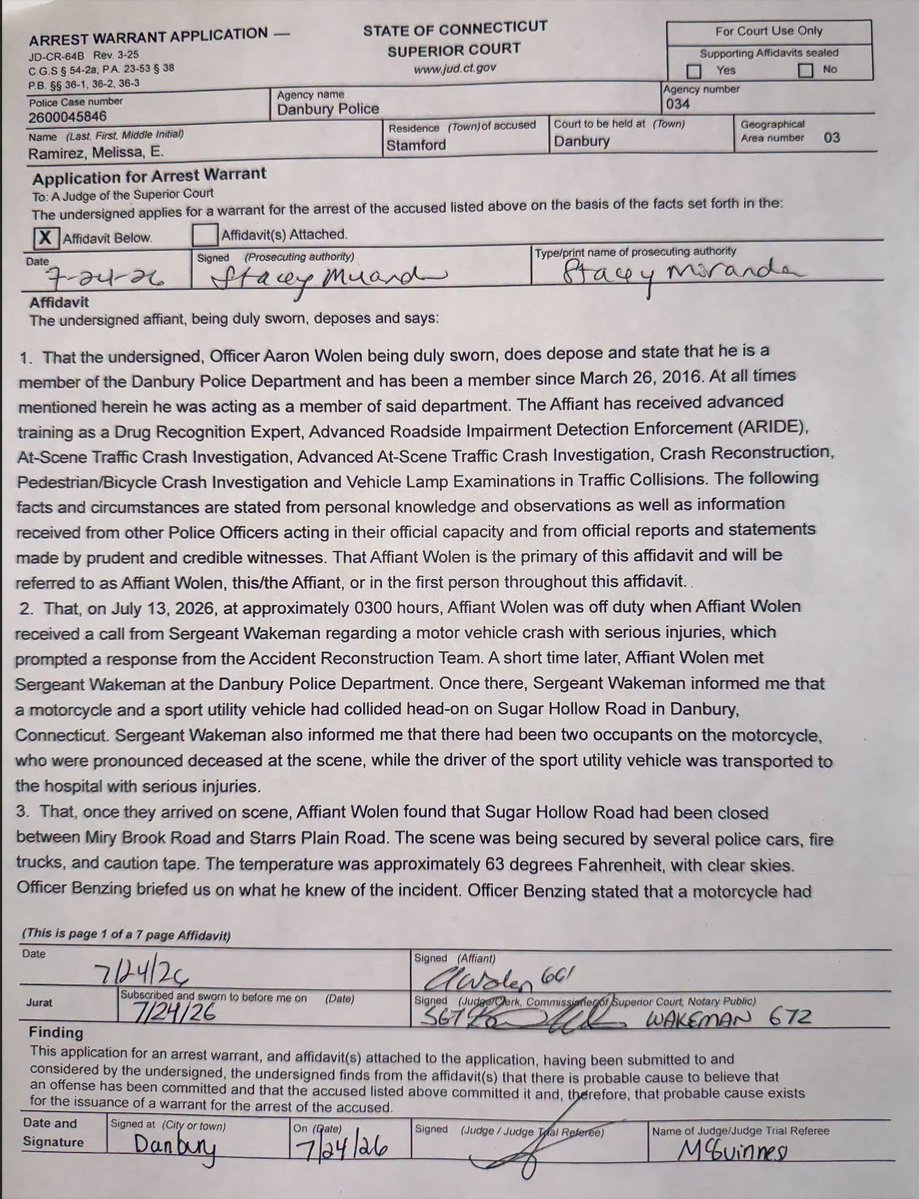 ARREST WARRANT APPLICATION —
JD-CR-64B Rev. 3-25
C.G.S § 54-2a; P.A. 23-53 § 38
P.B. §§ 36-1, 36-2, 36-3
STATE OF CONNECTICUT
SUPERIOR COURT
www.jud.ct.gov
For Court Use Only
Supporting Affidavits sealed
Yes No
Police Case number
2600045846
Agency name
Danbury Police
Agency number
034
Name (Last, First, Middle Initial)
Ramirez, Melissa, E.
Residence (Town) of accused
Stamford
Court to be held at (Town)
Danbury
Geographical
Area number 03
Application for Arrest Warrant
To: A Judge of the Superior Court
The undersigned applies for a warrant for the arrest of the accused listed above on the basis of the facts set forth in the:
X Affidavit Below. Affidavit(s) Attached.
Date
7-24-26
Signed (Prosecuting authority)
Stacey Miranda
Type/print name of prosecuting authority
Stacey Miranda
Affidavit
The undersigned affiant, being duly sworn, deposes and says:
1. That the undersigned, Officer Aaron Wolen being duly sworn, does depose and state that he is a
member of the Danbury Police Department and has been a member since March 26, 2016. At all times
mentioned herein he was acting as a member of said department. The Affiant has received advanced
training as a Drug Recognition Expert, Advanced Roadside Impairment Detection Enforcement (ARIDE),
At-Scene Traffic Crash Investigation, Advanced At-Scene Traffic Crash Investigation, Crash Reconstruction,
Pedestrian/Bicycle Crash Investigation and Vehicle Lamp Examinations in Traffic Collisions. The following
facts and circumstances are stated from personal knowledge and observations as well as information
received from other Police Officers acting in their official capacity and from official reports and statements
made by prudent and credible witnesses. That Affiant Wolen is the primary of this affidavit and will be
referred to as Affiant Wolen, this/the Affiant, or in the first person throughout this affidavit. .
2. That, on July 13, 2026, at approximately 0300 hours, Affiant Wolen was off duty when Affiant Wolen
received a call from Sergeant Wakeman regarding a motor vehicle crash with serious injuries, which
prompted a response from the Accident Reconstruction Team. A short time later, Affiant Wolen met
Sergeant Wakeman at the Danbury Police Department. Once there, Sergeant Wakeman informed me that
a motorcycle and a sport utility vehicle had collided head-on on Sugar Hollow Road in Danbury,
Connecticut. Sergeant Wakeman also informed me that there had been two occupants on the motorcycle,
who were pronounced deceased at the scene, while the driver of the sport utility vehicle was transported to
the hospital with serious injuries.
3. That, once they arrived on scene, Affiant Wolen found that Sugar Hollow Road had been closed
between Miry Brook Road and Starrs Plain Road. The scene was being secured by several police cars, fire
trucks, and caution tape. The temperature was approximately 63 degrees Fahrenheit, with clear skies.
Officer Benzing briefed us on what he knew of the incident. Officer Benzing stated that a motorcycle had
(This is page 1 of a 7 page Affidavit)
Date
7/24/26
Signed (Affiant)
AWolen 661
Jurat
Subscribed and sworn to before me on (Date)
7/24/26
Signed (Judge/Clerk, Commissioner of Superior Court, Notary Public)
SGT WAKEMAN 672
Finding
This application for an arrest warrant, and affidavit(s) attached to the application, having been submitted to and
considered by the undersigned, the undersigned finds from the affidavit(s) that there is probable cause to believe that
an offense has been committed and that the accused listed above committed it and, therefore, that probable cause exists
for the issuance of a warrant for the arrest of the accused.
Date and
Signature
Signed at (City or town)
Danbury
On (Date)
7/24/26
Signed (Judge / Judge Trial Referee)
Name of Judge/Judge Trial Referee
McGuinness